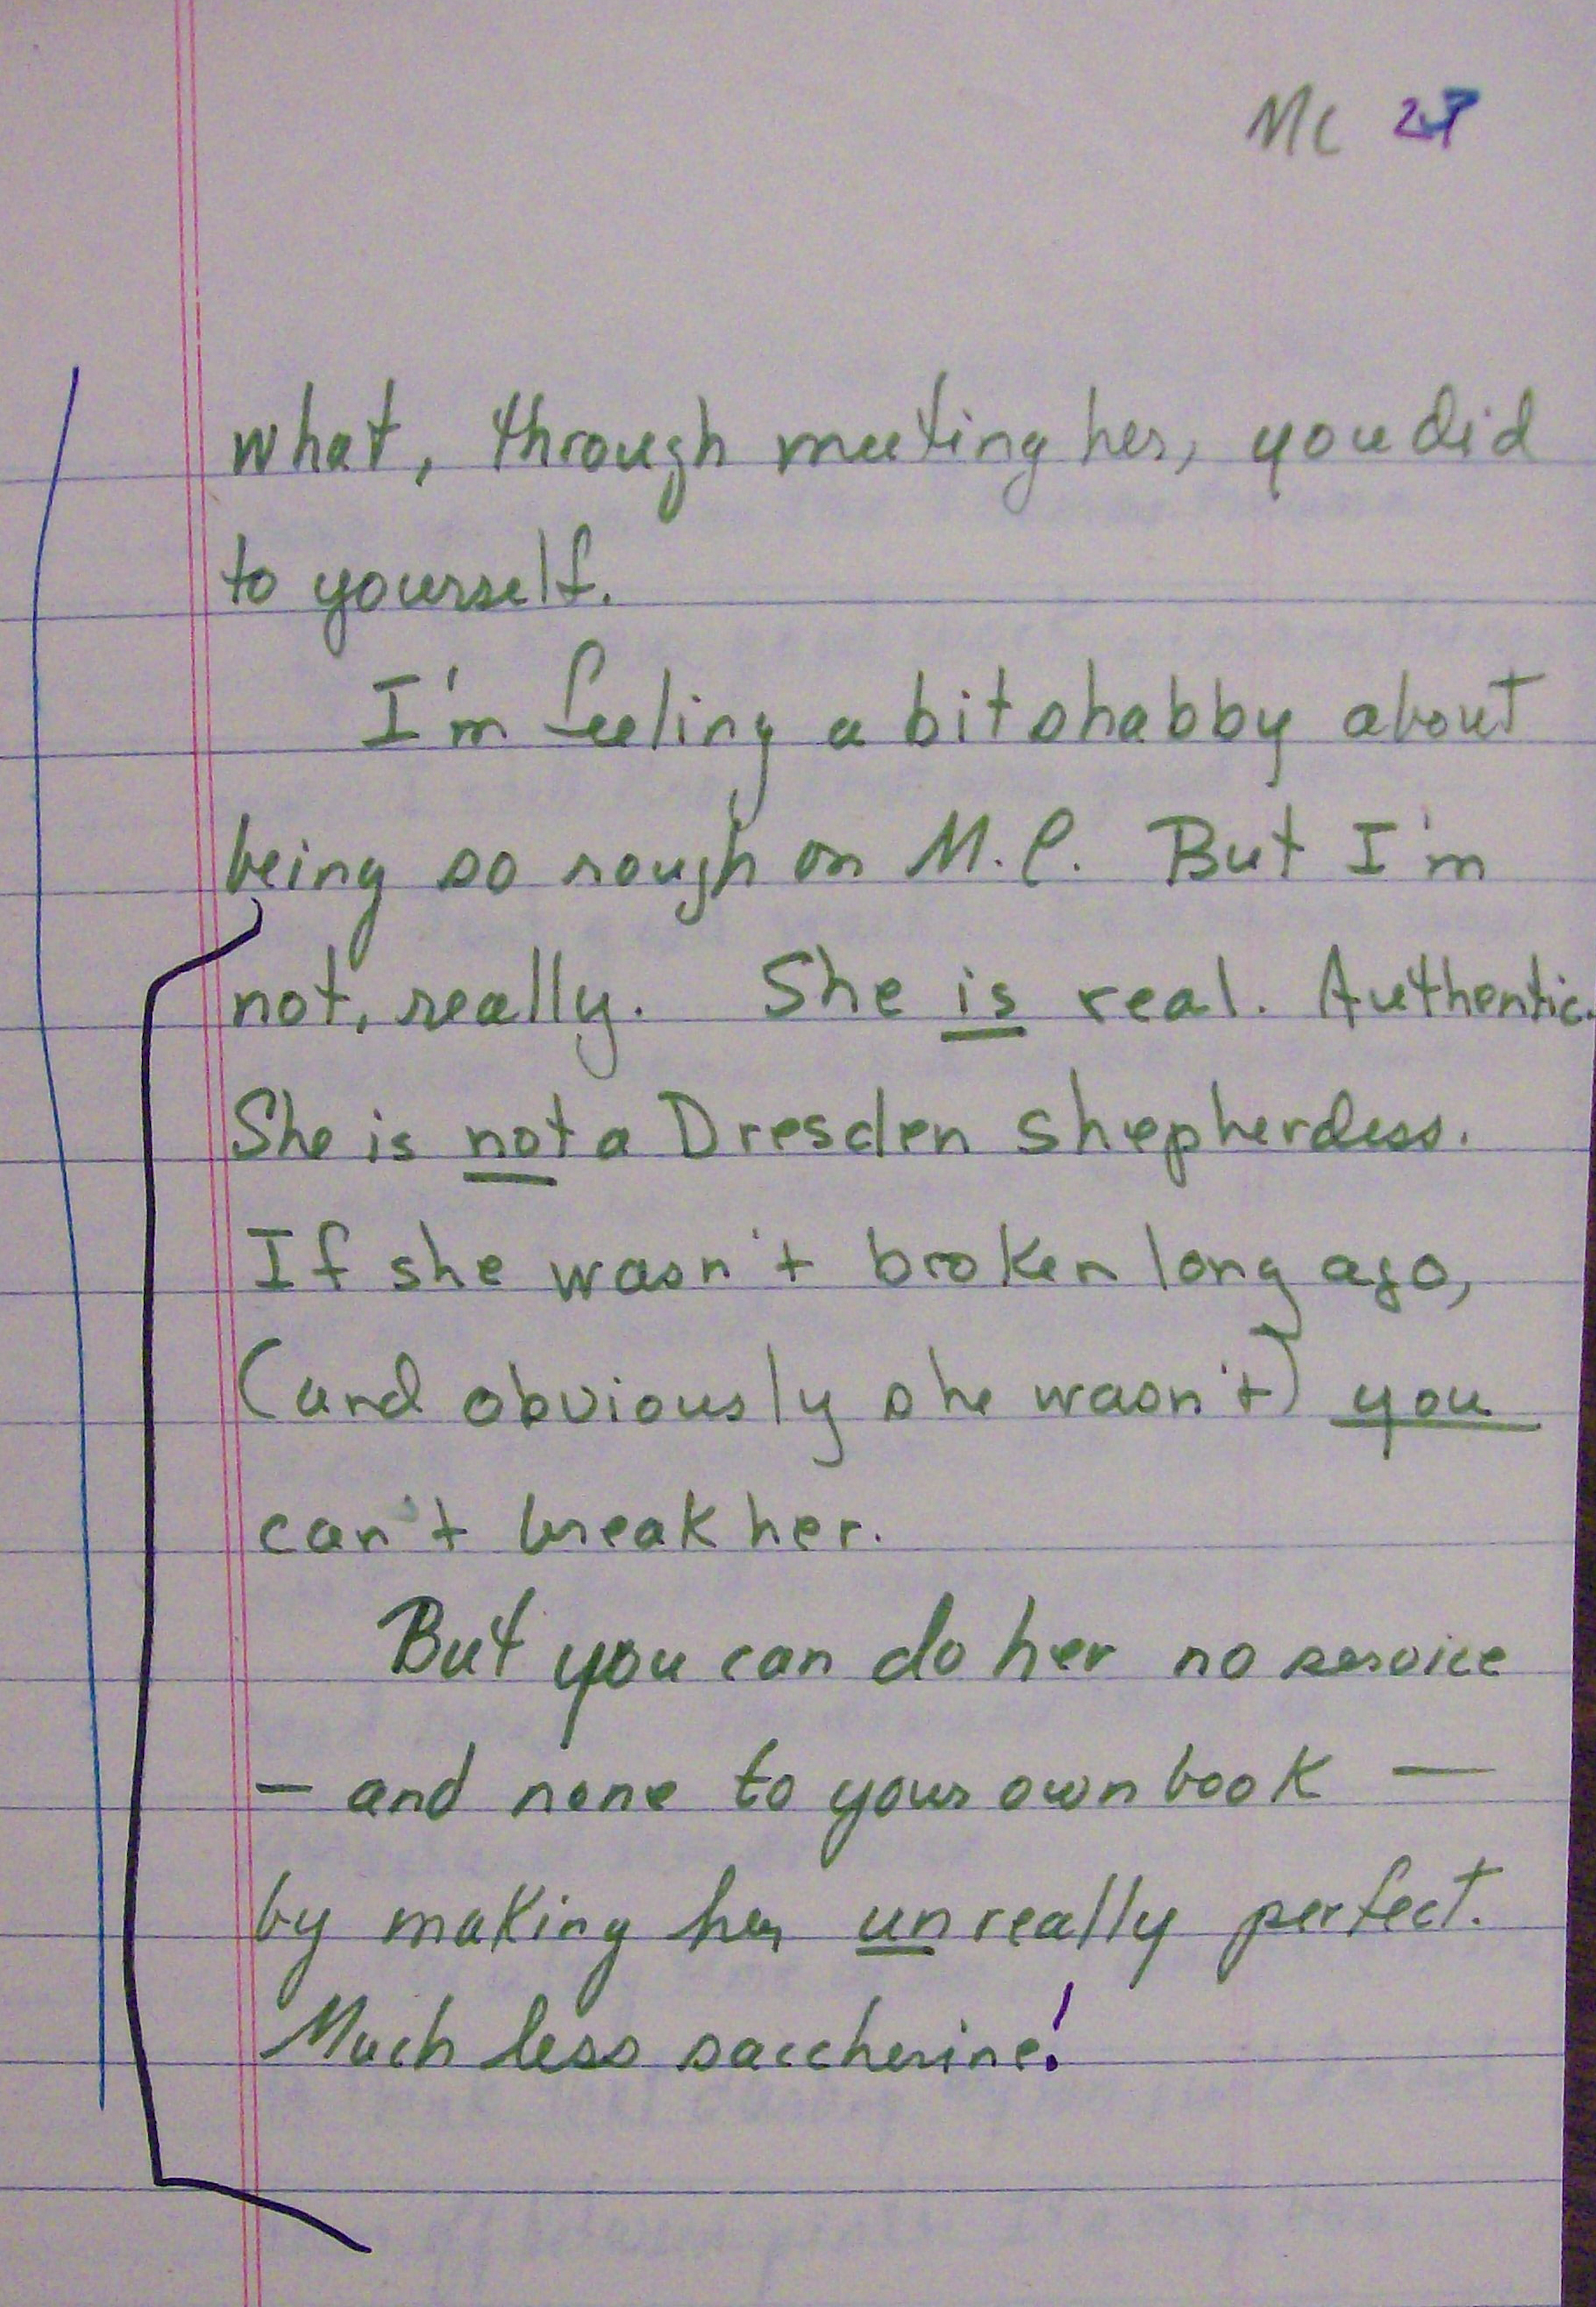 MC 27
what, through meeting her, you did
to yourself.
I'm feeling a bit shabby about
being so rough on M.C. But I'm
not, really. She is real. Authentic.
She is not a Dresden shepherdess.
If she wasn't broken long ago,
(and obviously she wasn't) you
can't break her.
But you can do her no service
— and none to your own book —
by making her unreally perfect.
Much less saccherine!